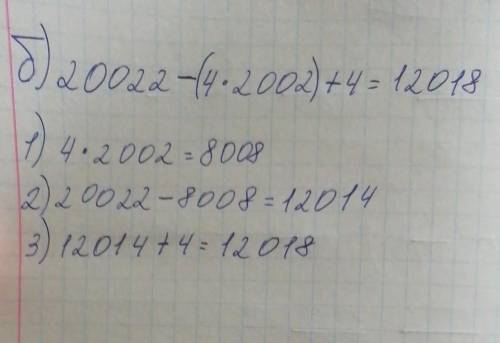 б) 20022-(4·2002)+4=12018
1) 4·2002=8008
2) 20022-8008=12014
3) 12014+4=12018